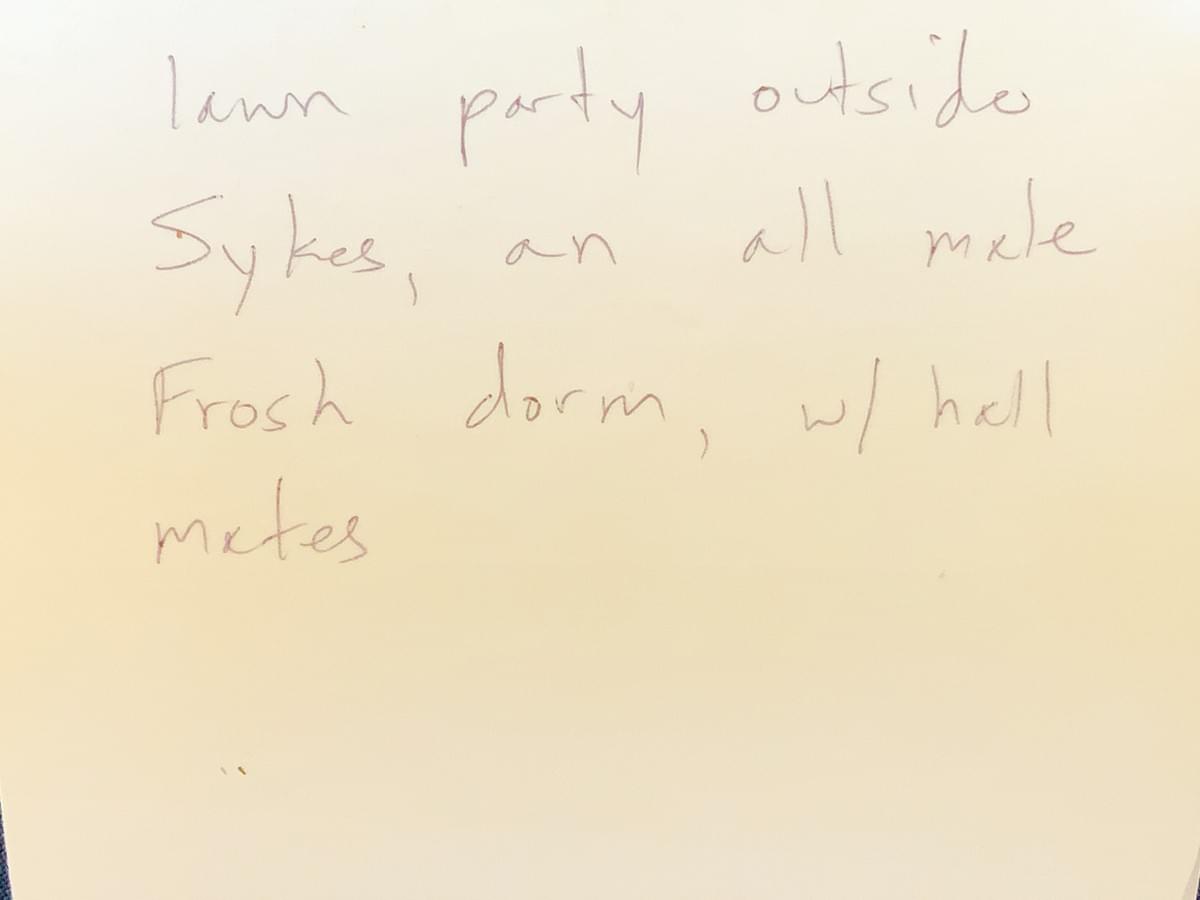 lawn party outside
Sykes, an all male
Frosh dorm, w/ hall
mates